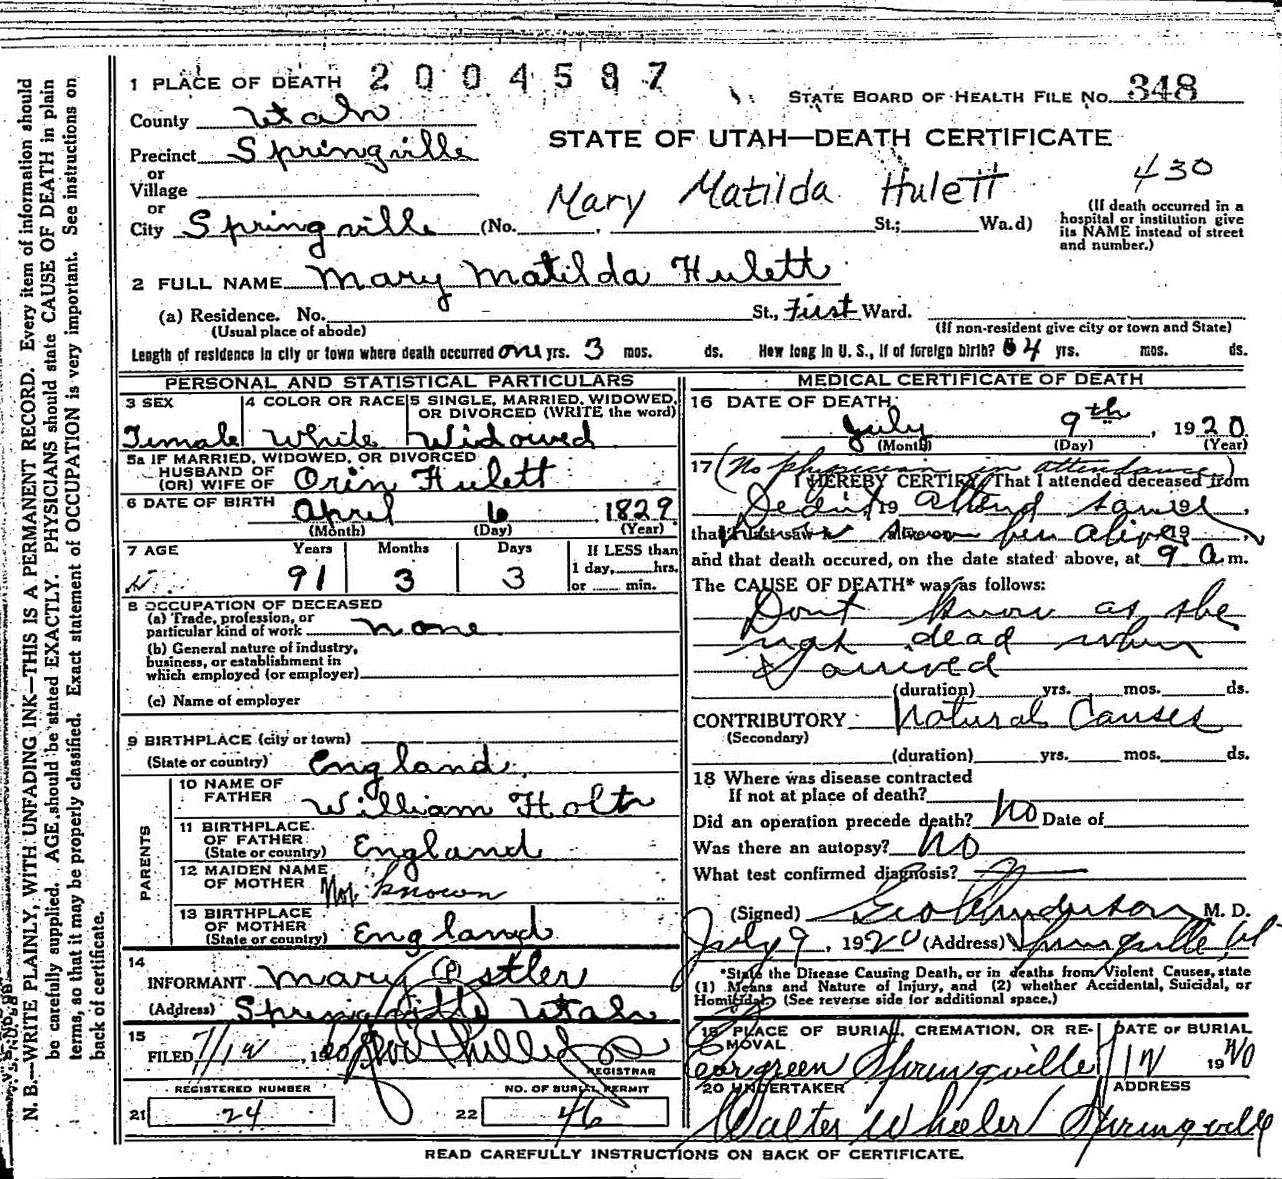 2004587
1 PLACE OF DEATH
STATE BOARD OF HEALTH FILE No. 348
County Utah
STATE OF UTAH—DEATH CERTIFICATE
Precinct Springville
or
Village
or
Mary Matilda Hulett
430
City Springville (No. , St.; Wa.d)
(If death occurred in a
hospital or institution give
its NAME instead of street
and number.)
2 FULL NAME Mary Matilda Hulett
(a) Residence. No. St., First Ward.
(Usual place of abode)
(If non-resident give city or town and State)
Length of residence in city or town where death occurred one yrs. 3 mos. ds. How long in U. S., if of foreign birth? 64 yrs. mos. ds.
PERSONAL AND STATISTICAL PARTICULARS
3 SEX
Female
4 COLOR OR RACE
White
5 SINGLE, MARRIED, WIDOWED,
OR DIVORCED (WRITE the word)
Widowed
5a IF MARRIED, WIDOWED, OR DIVORCED
HUSBAND OF
(OR) WIFE OF Orin Hulett
6 DATE OF BIRTH
April 6 1829
(Month) (Day) (Year)
7 AGE
Years Months Days
91 3 3
If LESS than
1 day, hrs.
or min.
8 OCCUPATION OF DECEASED
(a) Trade, profession, or
particular kind of work none
(b) General nature of industry,
business, or establishment in
which employed (or employer)
(c) Name of employer
9 BIRTHPLACE (city or town)
(State or country) England
PARENTS
10 NAME OF
FATHER William Holt
11 BIRTHPLACE
OF FATHER
(State or country) England
12 MAIDEN NAME
OF MOTHER Not known
13 BIRTHPLACE
OF MOTHER
(State or country) England
14
INFORMANT Mary P Ostler
(Address) Springville Utah
15
FILED 7/12, 1920
REGISTRAR
REGISTERED NUMBER
21 24
NO. OF BURIAL PERMIT
22 46
MEDICAL CERTIFICATE OF DEATH
16 DATE OF DEATH
July 9th, 1920
(Month) (Day) (Year)
17 (No physician in attendance)
I HEREBY CERTIFY, That I attended deceased from
19 19
that I last saw h alive on 19
and that death occured, on the date stated above, at 9 a m.
The CAUSE OF DEATH* was as follows:
Dont know as she
was dead when
I arrived
(duration) yrs. mos. ds.
CONTRIBUTORY Natural Causes
(Secondary)
(duration) yrs. mos. ds.
18 Where was disease contracted
If not at place of death?
Did an operation precede death? No Date of
Was there an autopsy? No
What test confirmed diagnosis?
(Signed) Geo Anderson M. D.
July 9, 1920 (Address) Springville Ut
*State the Disease Causing Death, or in deaths from Violent Causes, state
(1) Means and Nature of Injury, and (2) whether Accidental, Suicidal, or
Homicidal. (See reverse side for additional space.)
19 PLACE OF BURIAL, CREMATION, OR RE-
MOVAL
Evergreen Springville
DATE OF BURIAL
7/12 1920
20 UNDERTAKER
Walter Wheeler
ADDRESS
Springville
READ CAREFULLY INSTRUCTIONS ON BACK OF CERTIFICATE.
N. B.—WRITE PLAINLY, WITH UNFADING INK—THIS IS A PERMANENT RECORD. Every item of information should
be carefully supplied. AGE should be stated EXACTLY. PHYSICIANS should state CAUSE OF DEATH in plain
terms, so that it may be properly classified. Exact statement of OCCUPATION is very important. See instructions on
back of certificate.